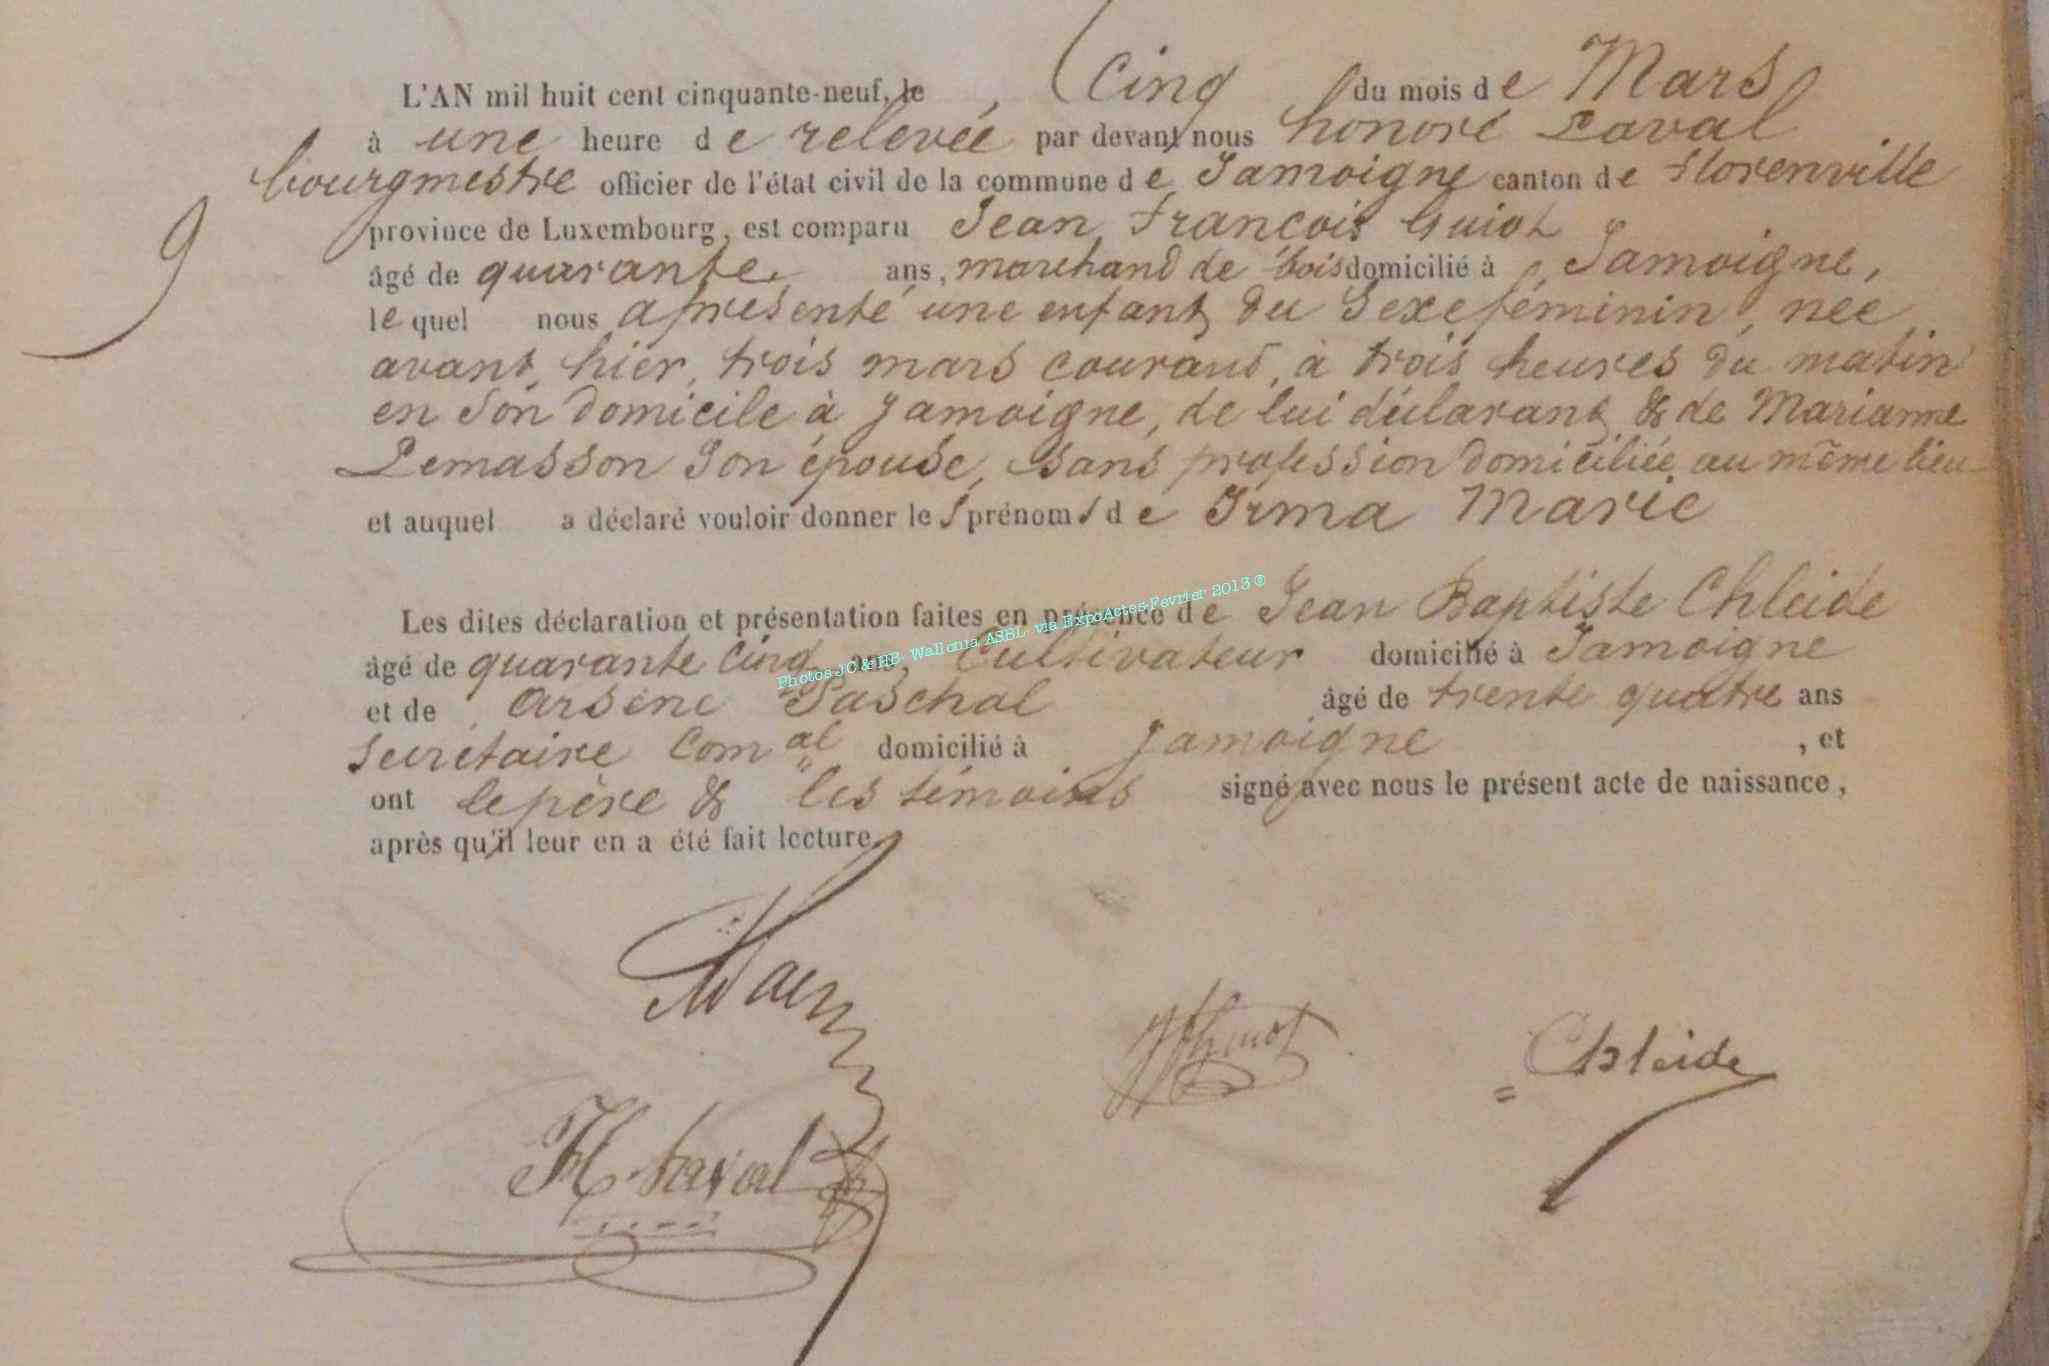 L'AN mil huit cent cinquante-neuf, le Cinq du mois de Mars
à une heure de relevée par devant nous honoré Laval
bourgmestre officier de l'état civil de la commune de Jamoigne canton de Florenville
province de Luxembourg, est comparu Jean François Guiot
âgé de quarante ans, marchand de bois domicilié à Jamoigne,
lequel nous a présenté une enfant du Sexe féminin, née
avant hier, trois mars courant, à trois heures du matin
en son domicile à Jamoigne, de lui déclarant & de Marianne
Lemasson son épouse, sans profession domiciliée au même lieu
et auquel a déclaré vouloir donner les prénoms de Irma Marie
Les dites déclaration et présentation faites en présence de Jean Baptiste Chleide
âgé de quarante cinq ans, Cultivateur domicilié à Jamoigne
et de Arsène Paschal âgé de trente quatre ans
Secrétaire Comal domicilié à Jamoigne, et
ont le père & les témoins signé avec nous le présent acte de naissance,
après qu'il leur en a été fait lecture
9
Photos JC & HB Wallonia ASBL via ExpoActes Février 2013 ®
Chleide
H. Laval